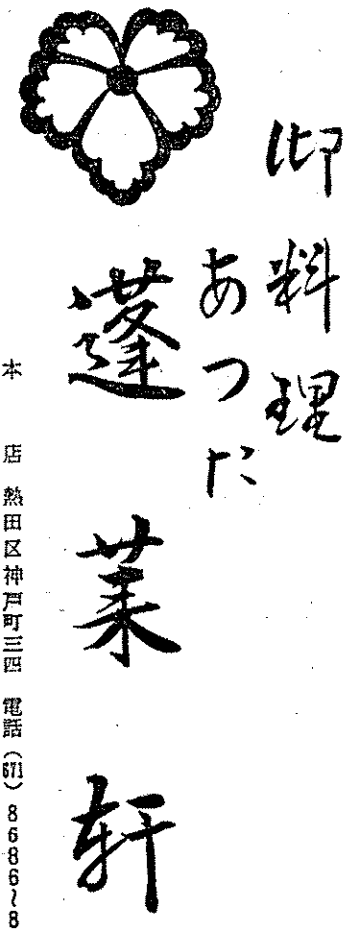 御料理
あつた
蓬莱軒
本店 熱田区神戸町三四 電話(671)8686~8